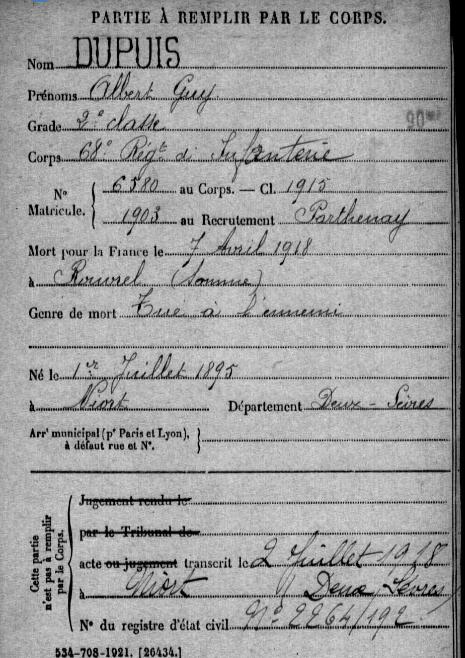 PARTIE À REMPLIR PAR LE CORPS.
Nom DUPUIS
Prénoms Albert Guy
Grade 2e classe
Corps 68e Régt di Infanterie
No Matricule. { 6380 au Corps. — Cl. 1915
1903 au Recrutement Parthenay
Mort pour la France le 7 Avril 1918
à Rouvrel (Somme)
Genre de mort Tué à l'ennemi
Né le 1er Juillet 1895
à Niort Département Deux-Sèvres
Arrt municipal (pr Paris et Lyon), à défaut rue et No.
Cette partie n'est pas à remplir par le Corps.
Jugement rendu le
par le Tribunal de
acte ou jugement transcrit le 2 Juillet 1918
à Niort Deux Sèvres
No du registre d'état civil No 2264/192
534-708-1921. [26434.]